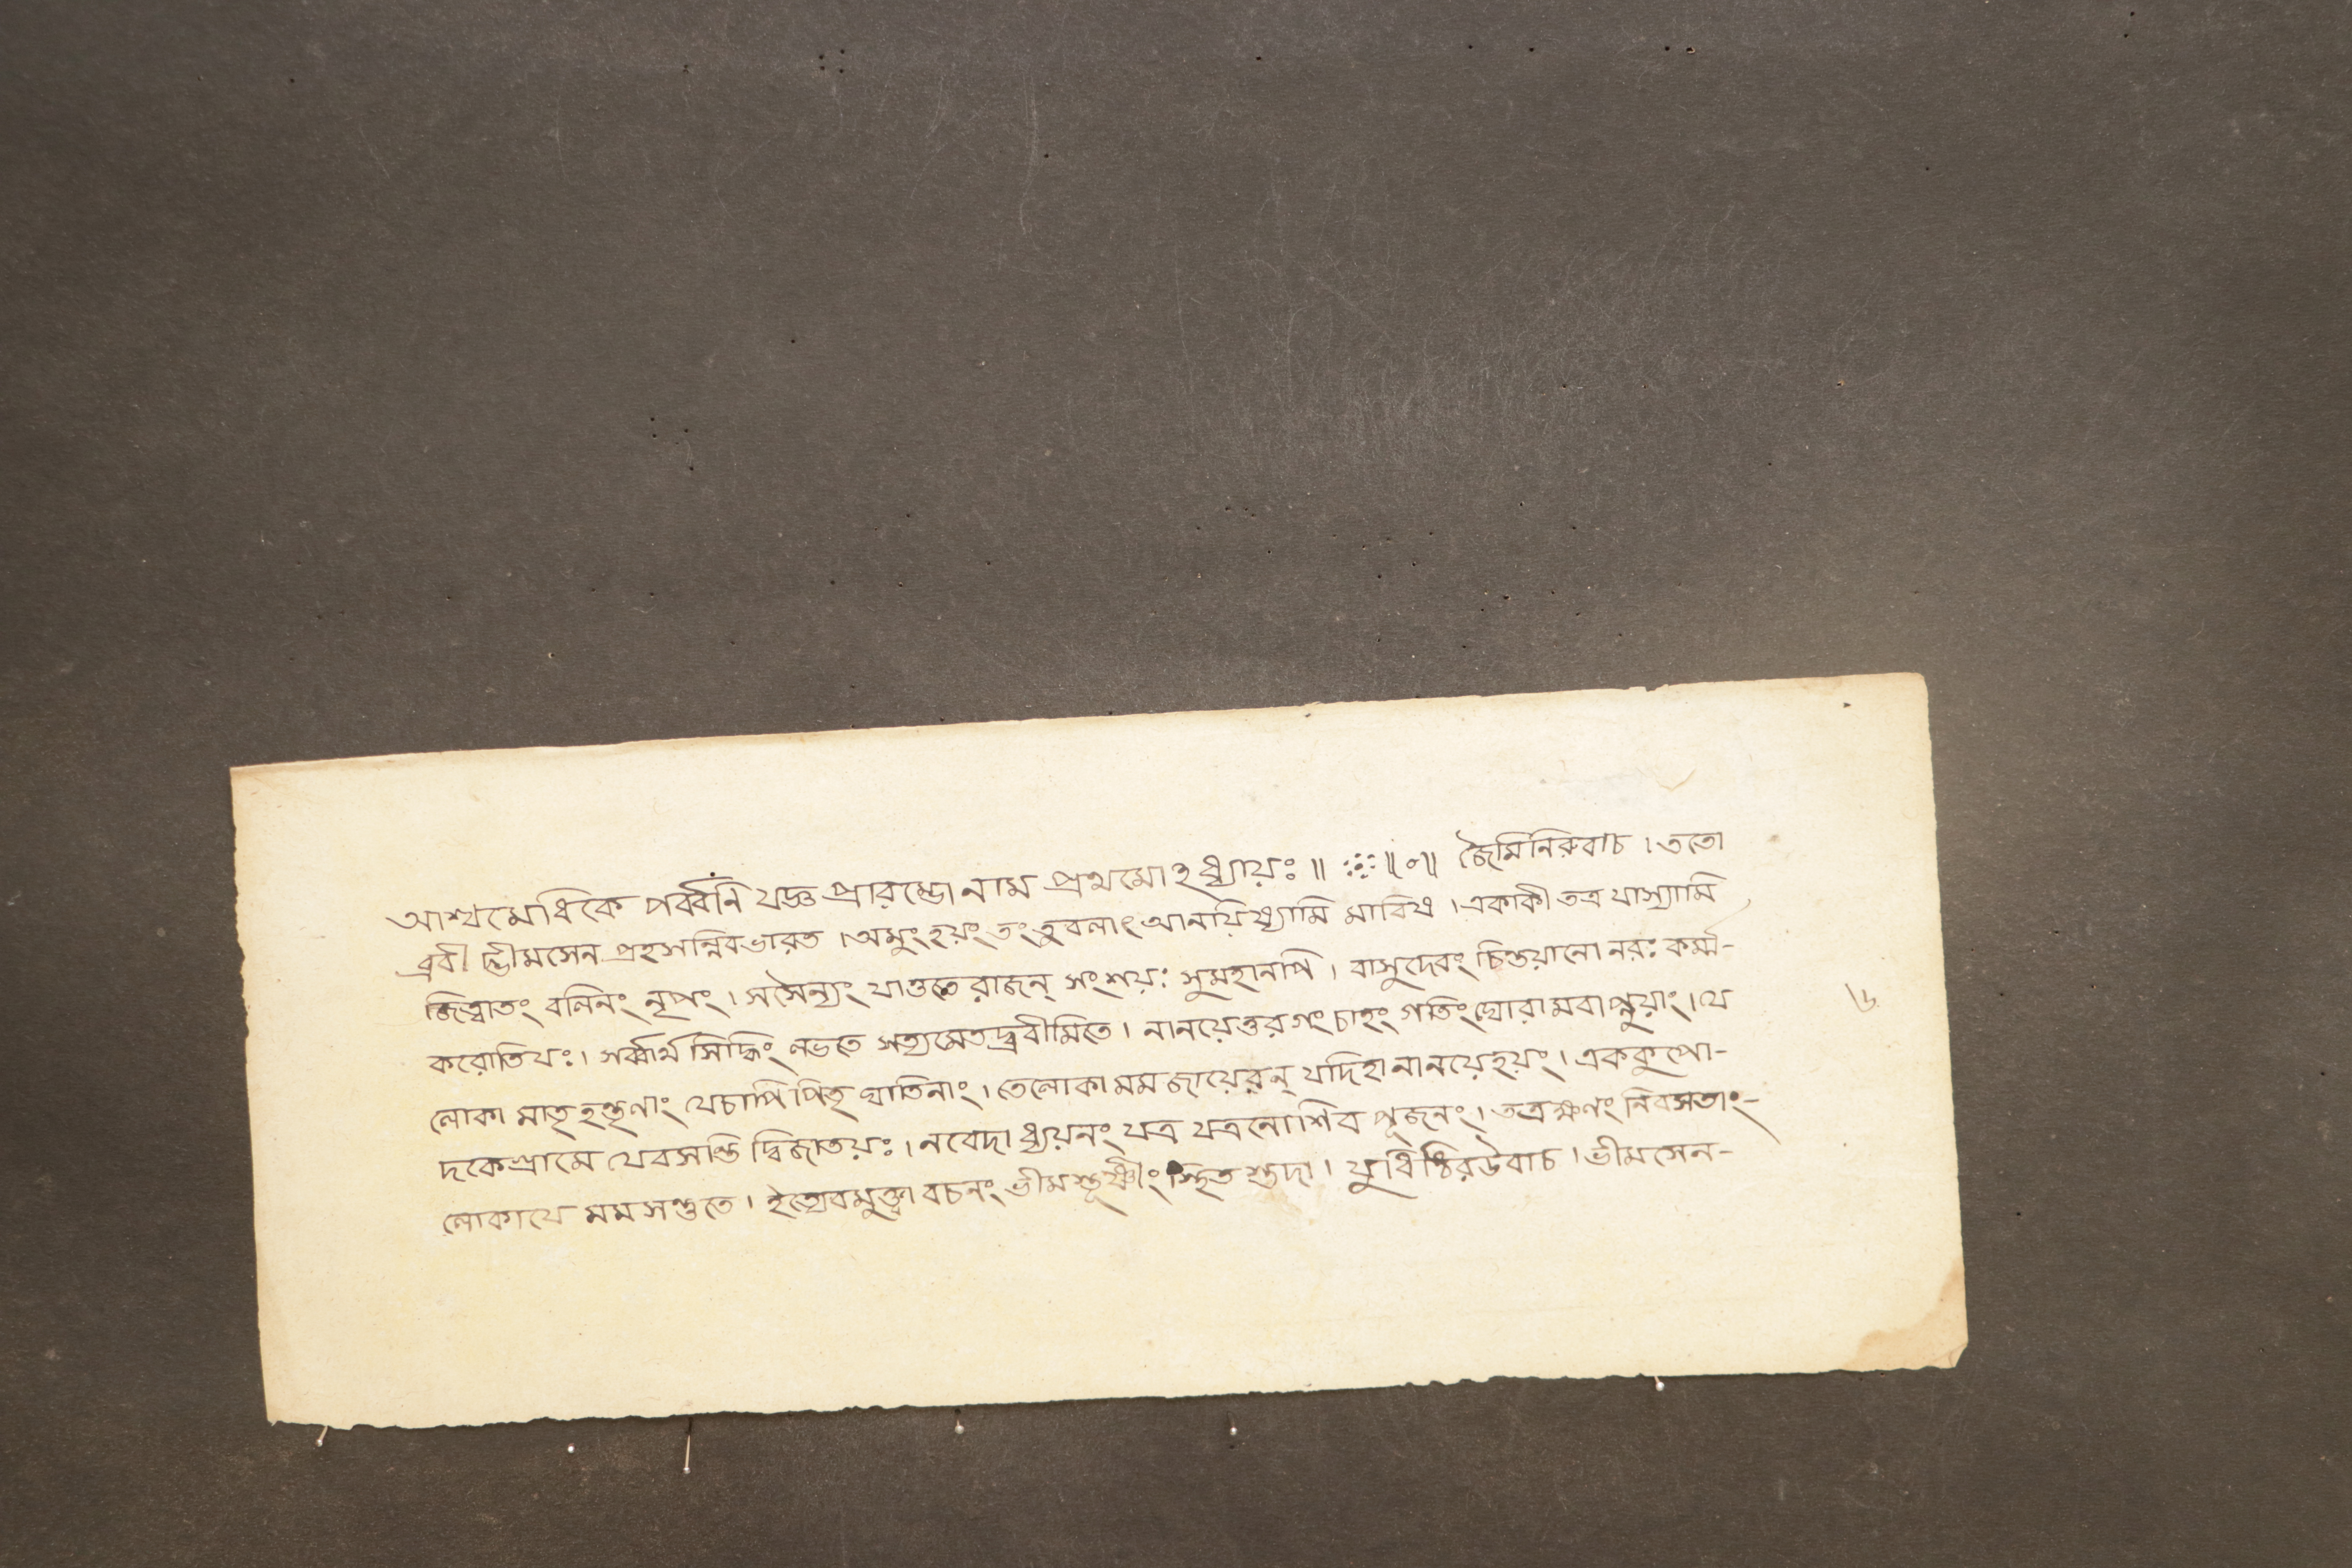 আশ্বমেধিকে পর্ব্বনি যজ্ঞ প্রারম্ভো নাম প্রথমোঽধ্যায়ঃ॥ ॥०॥ জৈমিনিরুবাচ। ততো
ব্রবীদ্ভীমসেন প্রহসন্নিবভারত। অমুংহয়ং তং তু বলাৎ আনয়িষ্যামি মাবিথ। একাকী তত্র যাস্যামি
জিত্বাতং বলিনং নৃপং। সসৈন্যং যাতুতে রাজন্ সংশয়ঃ সুমহানপি। বাসুদেবং চিন্তয়ানো নরঃ কর্ম্ম-
করোতিযঃ। সর্ব্বার্থ সিদ্ধিং লভতে সত্যমেতদ্ব্রবীমিতে। নানয়েত্তুরগং চাহং গতিং ঘোরামবাপ্নুয়াং। যে
লোকা মাতৃহন্তৄণাং যেচাপি পিতৃ ঘাতিনাং। তেলোকা মম জায়েরন্ যদিহা নানয়েহয়ং। এককুপো-
দকেগ্রামে যেবসন্তি দ্বিজাতয়ঃ। নবেদাধ্যয়নং যত্র যত্রনোশিব পূজনং। তত্রক্ষণং নিবসতাং-
লোকাযে মম সন্তুতে। ইত্যেবমুক্ত্বা বচনং ভীমস্তূষ্ণীং স্থিত স্তদা। যুধিষ্ঠিরউবাচ। ভীমসেন-